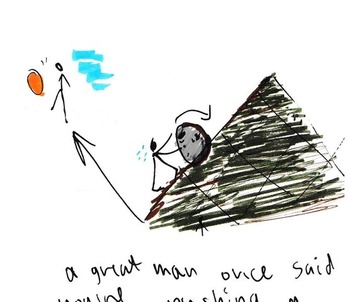 a great man once said
pushing a